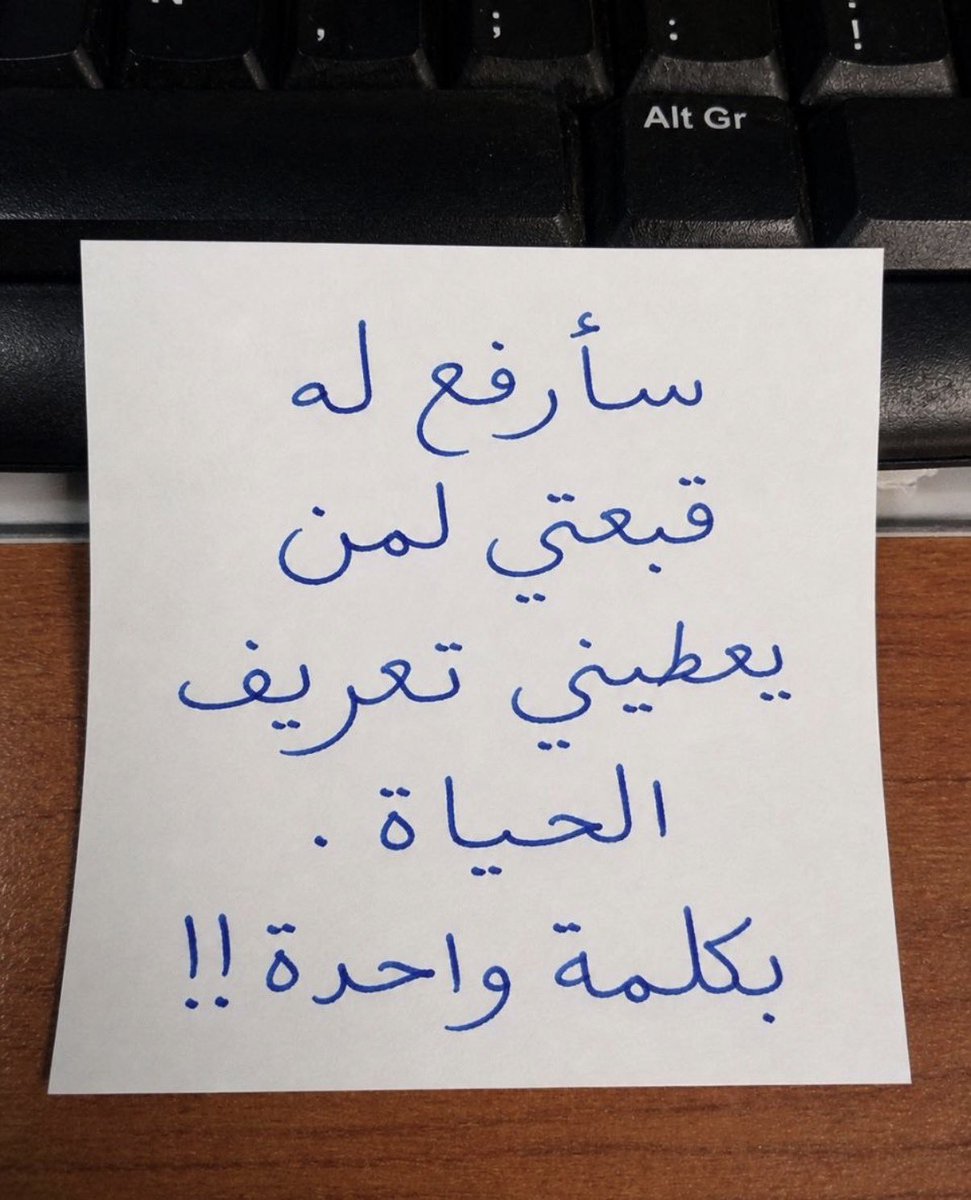 , ; : !
Alt Gr
سأرفع له
قبعتي لمن
يعطيني تعريف
الحياة .
بكلمة واحدة!!